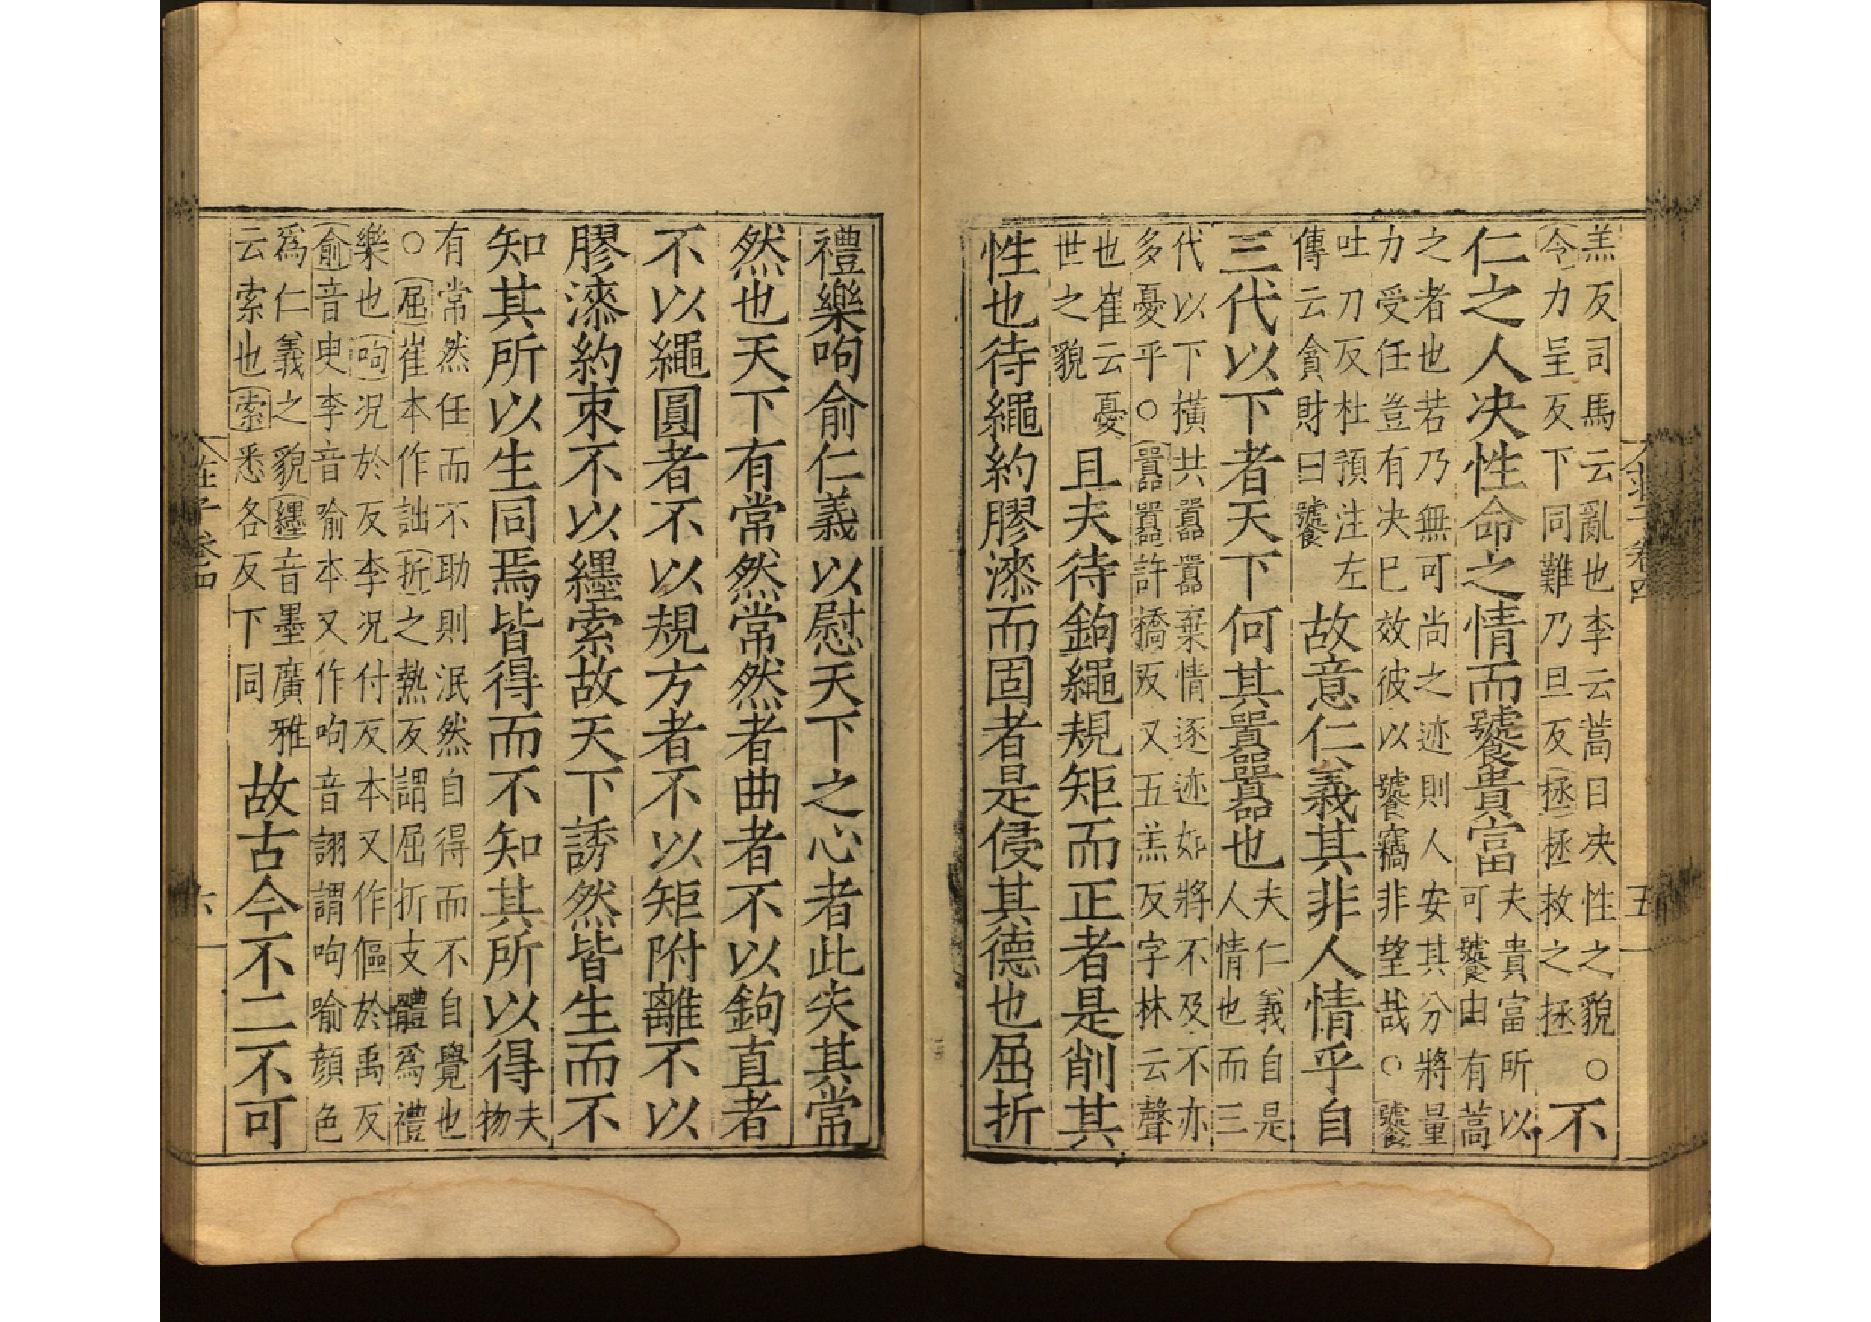 羔反司馬云亂也李云蒿目决性之貌○
令力呈反下同難乃旦反拯拯救之拯
不
仁之人决性命之情而饕貴富
夫貴富所以
可饕由有蒿
之者也若乃無可尚之迹則人安其分將量
力受任豈有决巳效彼以饕竊非望哉○饕
吐刀反杜預注左
傳云貪財曰饕
故意仁義其非人情乎自
三代以下者天下何其嚻嚻也
夫仁義自是
人情也而三
代以下橫共嚻嚻棄情逐迹如將不及不亦
多憂乎○嚻嚻許橋反又五羔反字林云聲
也崔云憂
世之貌
且夫待鉤繩規矩而正者是削其
性也待繩約膠漆而固者是侵其德也屈折
禮樂呴俞仁義以慰天下之心者此失其常
然也天下有常然常然者曲者不以鉤直者
不以繩圓者不以規方者不以矩附離不以
膠漆約束不以纆索故天下誘然皆生而不
知其所以生同焉皆得而不知其所以得
夫
物
有常然任而不助則泯然自得而不自覺也
○屈崔本作詘折之熱反謂屈折支體爲禮
樂也呴况於反李况付反本又作傴於禹反
俞音臾李音喻本又作呴音詡謂呴喻顔色
爲仁義之貌纆音墨廣雅
云索也索悉各反下同
故古今不二不可
莊子卷四
六